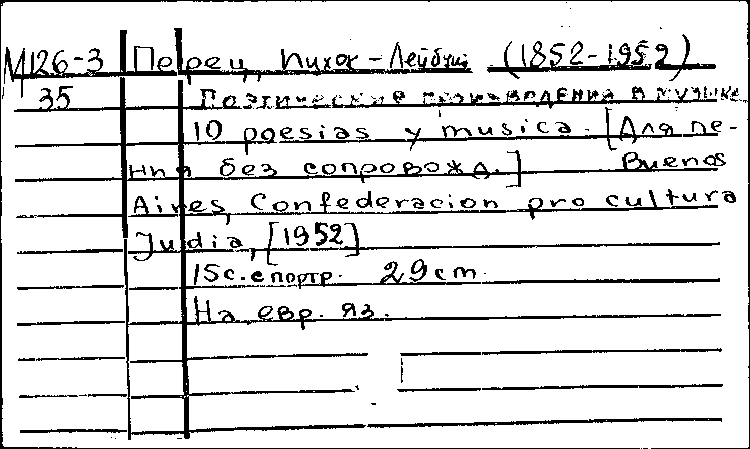 М126-3 Перец, Ицхок-Лейбуш (1852-1952)
35 Поэтические произведения в музыке
10 poesias y musica. [Для пе-
ния без сопровожд.] Buenos
Aires, Confederacion pro cultura
Judia, [1952]
15с. с портр. 29 cm.
На евр. яз.